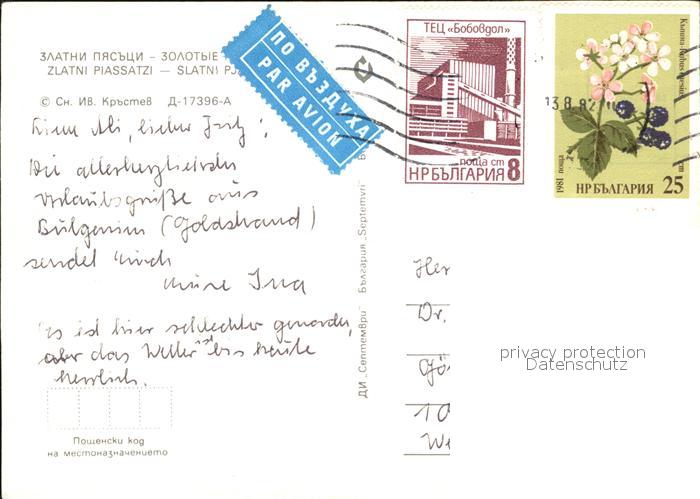 ЗЛАТНИ ПЯСЪЦИ – ЗОЛОТЫЕ
ZLATNI PIASSATZI – SLATNI PJ
© Сн. Ив. Кръстев Д-17396-А
ПО ВЪЗДУХА
PAR AVION
ТЕЦ «Бобовдол»
поща ст 8
НР БЪЛГАРИЯ
13.8.82
1981 поща
ст
НР БЪЛГАРИЯ 25
lieber
Die allerherzlichsten
Urlaubsgrüße aus
Bulgarien (Goldstrand)
sendet Euch
Eure Ina
es ist hier schlechter geworden,
aber das Wetter ist bis heute
herrlich.
Пощенски код
на местоназначението
ДИ „Септември" България „Septemvri"
Her
Dr.
Gö
10
We
privacy protection
Datenschutz